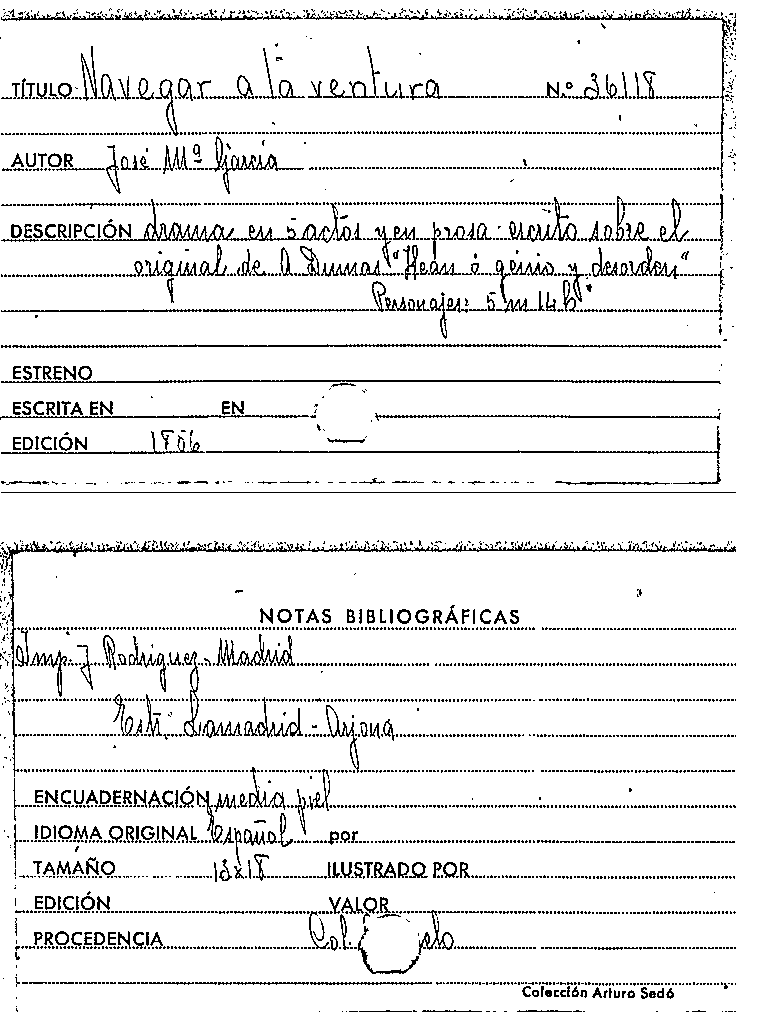 TÍTULO Navegar a la ventura N.º 36118
AUTOR José Mª García
DESCRIPCIÓN drama en 5 actos y en prosa escrito sobre el
original de A Dumas "Kean ó genio y desorden"
Personajes: 5 m 14 h
ESTRENO
ESCRITA EN EN
EDICIÓN 1856
NOTAS BIBLIOGRÁFICAS
Imp. J Rodriguez - Madrid
Estr. Lamadrid - Arjona
ENCUADERNACIÓN media piel
IDIOMA ORIGINAL Español por
TAMAÑO 13x18 ILUSTRADO POR
EDICIÓN VALOR
PROCEDENCIA Col.
Colección Arturo Sedó